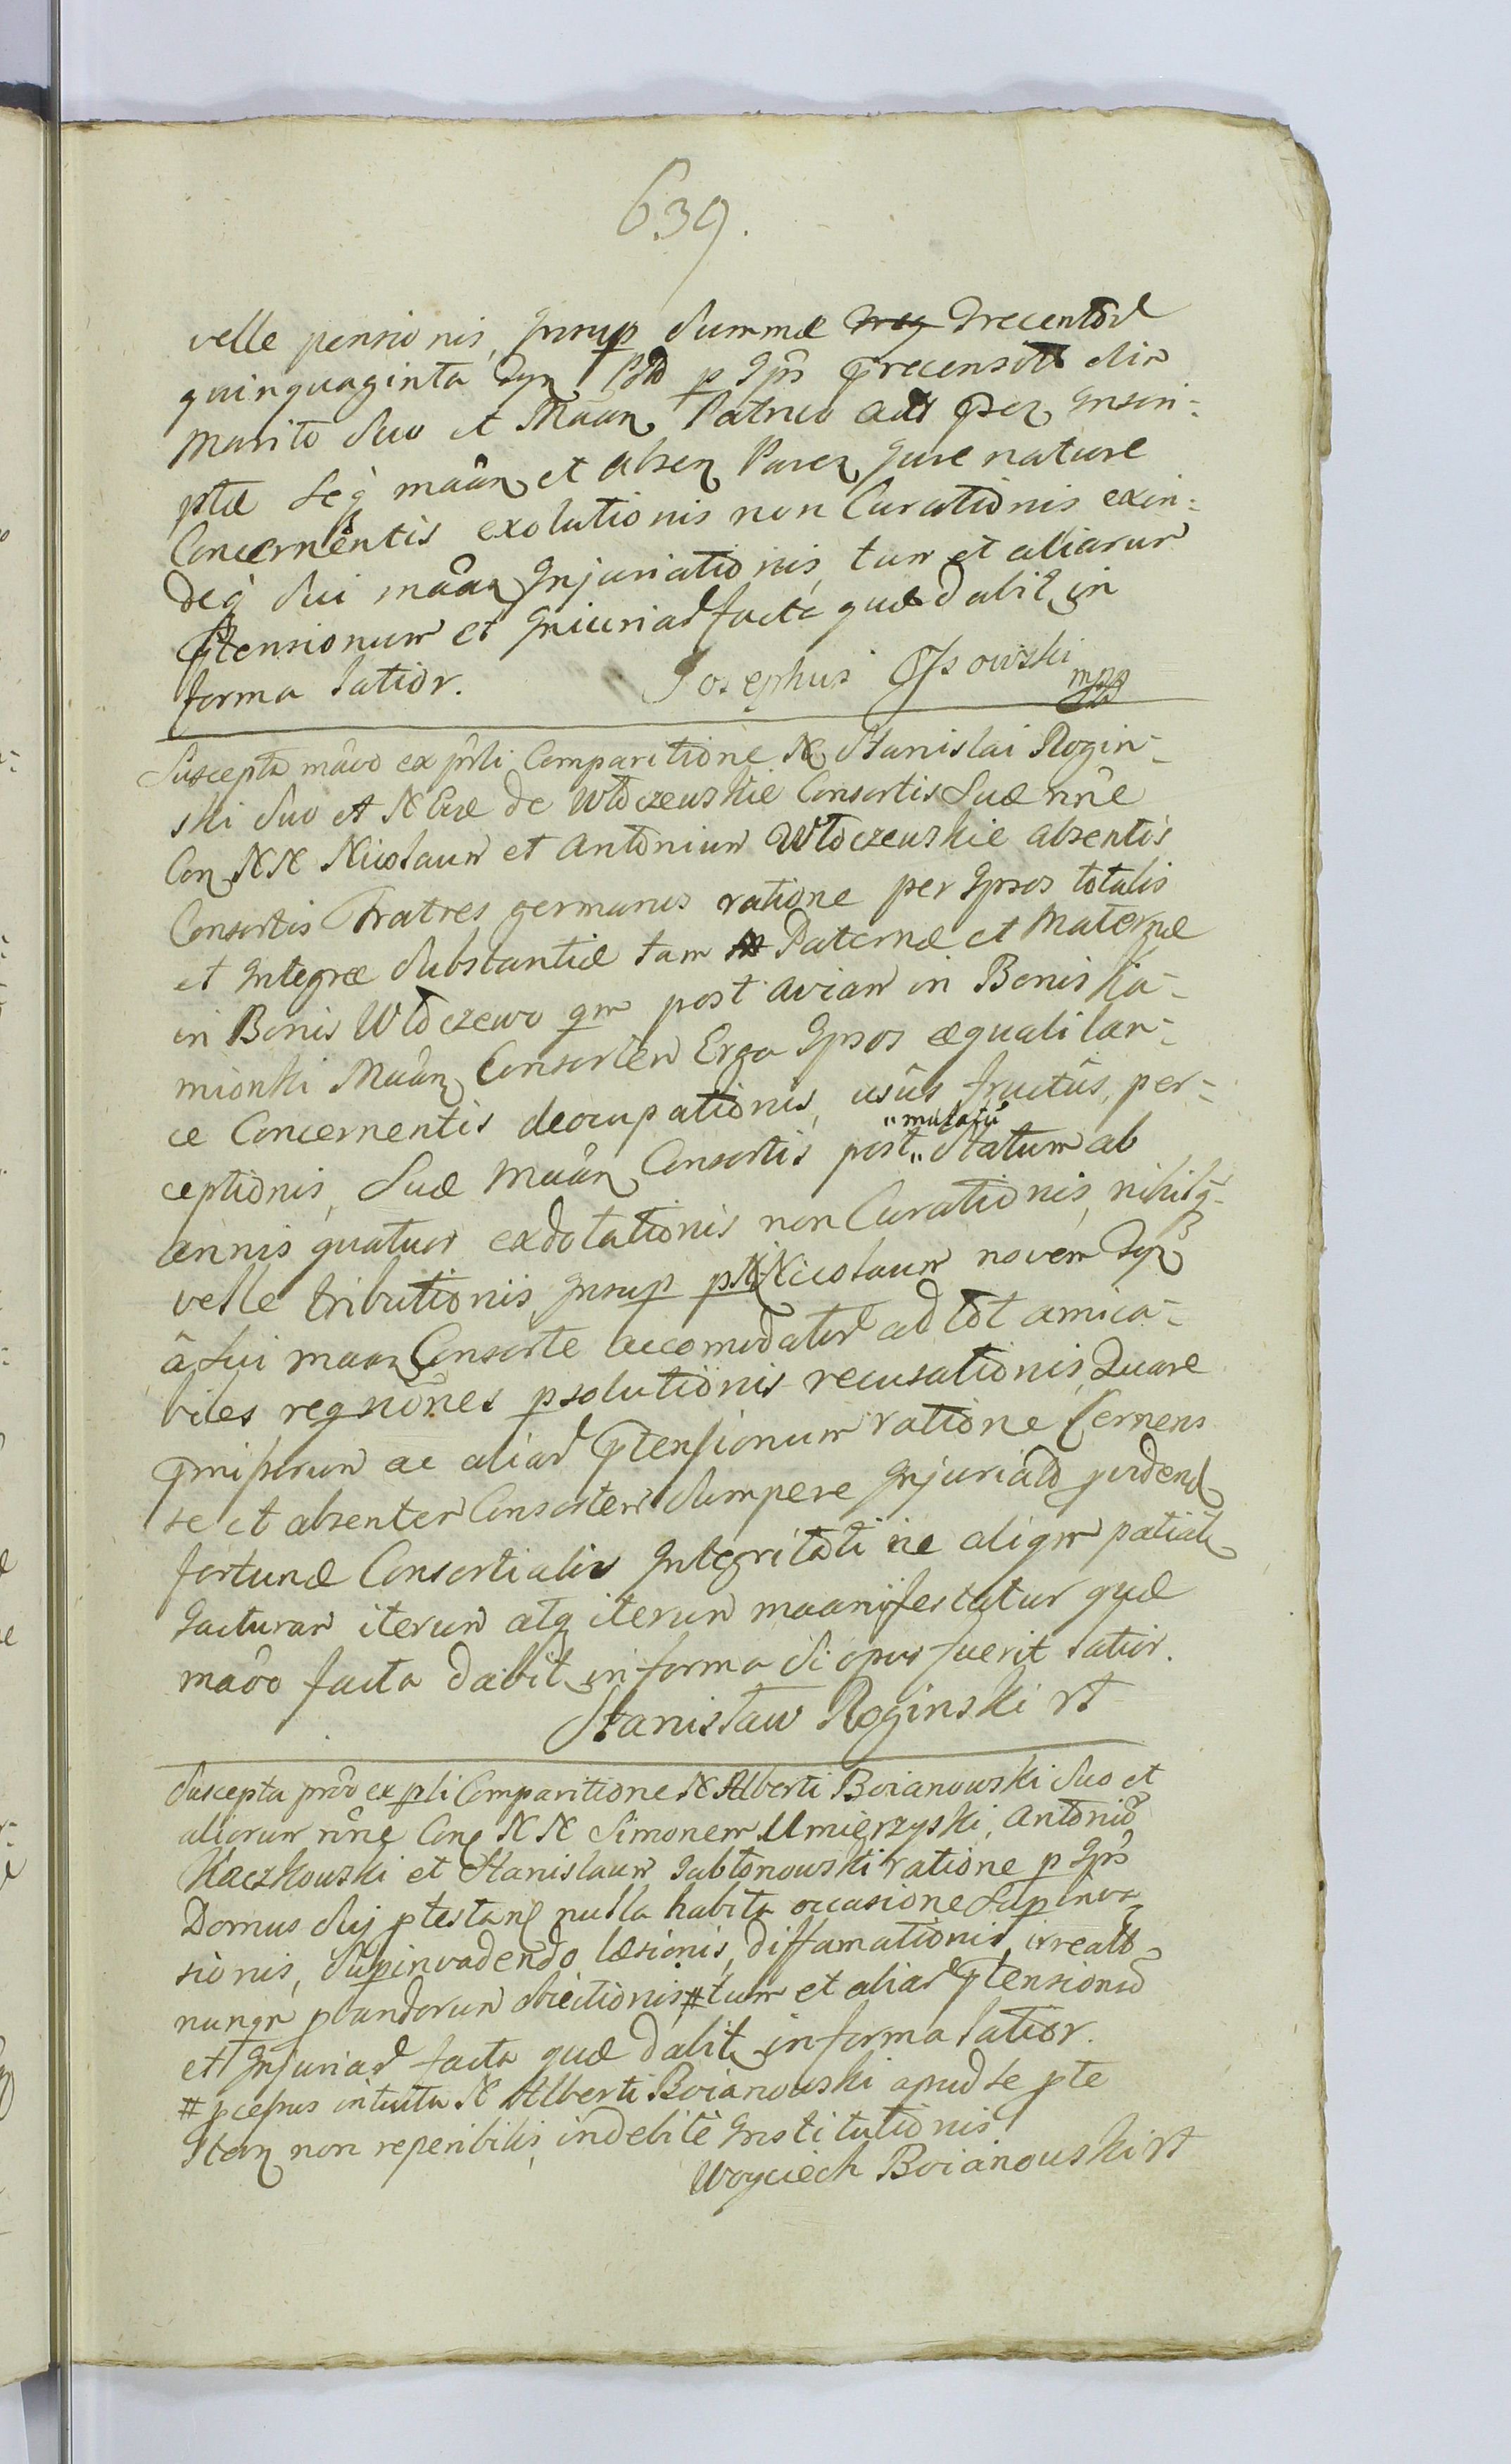 639.
velle pensionis, Insup Summæ Trecentor
quinquaginta Tyn Pbd p Ipõs precensoru olim
Marito suo et Maan Patruo ead per Inscri=
ptæ Seq maan et absen Paren Jure naturæ
Concernentis exolutionis non Curationis exin=
deq sui maan Injuriationis, tum et aliarum
ptensionum et Iniuriar facta quæ dabit in
forma latior. Josephus Ossowski mpp
Suscepta mavo ex prli Comparitione N Stanislai Rogin=
ski suo et N Evæ de Włoczewskie Consortis Suæ nñe
Con NN Nicolaum et Antonium Włoczewskie absentis
Consortis Fratres germanos ratione per Ipsos totalis
et Integræ Substantiæ tam Paternæ et Maternæ
in Bonis Włoczewo qm post aviam in Bonis Ka=
mionki Maan Consortem Erga Ipsos æquali lan=
ce Concernentis deocupationis, usûs fructûs, per=
ceptionis, Suæ Maan Consortis post „mutatũ„ Statum ab
annis quatuor exdotationis non Curationis, nihilq=
velle tributionis Insup p N Nicolaum novem Tyn
â sui maan Consorte accomodator ad tot amica=
biles reqnões psolutionis recusationis, Quare
pmissorum ac aliar ptensionum ratione Cernens
se et absentem Consortem Sumpere Injuriam providend
fortunæ Consortialis Integritati ne aliqm patiatr
Jacturam iterum atq iterum maanifestatur quæ
mavo facta dabit in forma Si opus fuerit latior.
Stanisław Roginski rt
Suscepta prvo ex prli Comparitione N Alberti Boianowski Suo et
aliorum nñe Con N N Simonem Umierzyski, Antoniũ
Kaczkowski et Stanislaum Jabłonowski ratione p Ipõs
Domus Suj ptestan nulla habita occasione Supinva=
sionis, Supinvadendo læsionis, diffamationis, irreali
nunqm pbandorum obiectionis # tum et aliar ptensionũ
et Injuriar facta quæ dabit in forma latior.
# pcessus intuitu N Alberti Boianowski apud se pte
Iten non reperibilis, indebitè Institutionis
Woyciech Boianowski rt